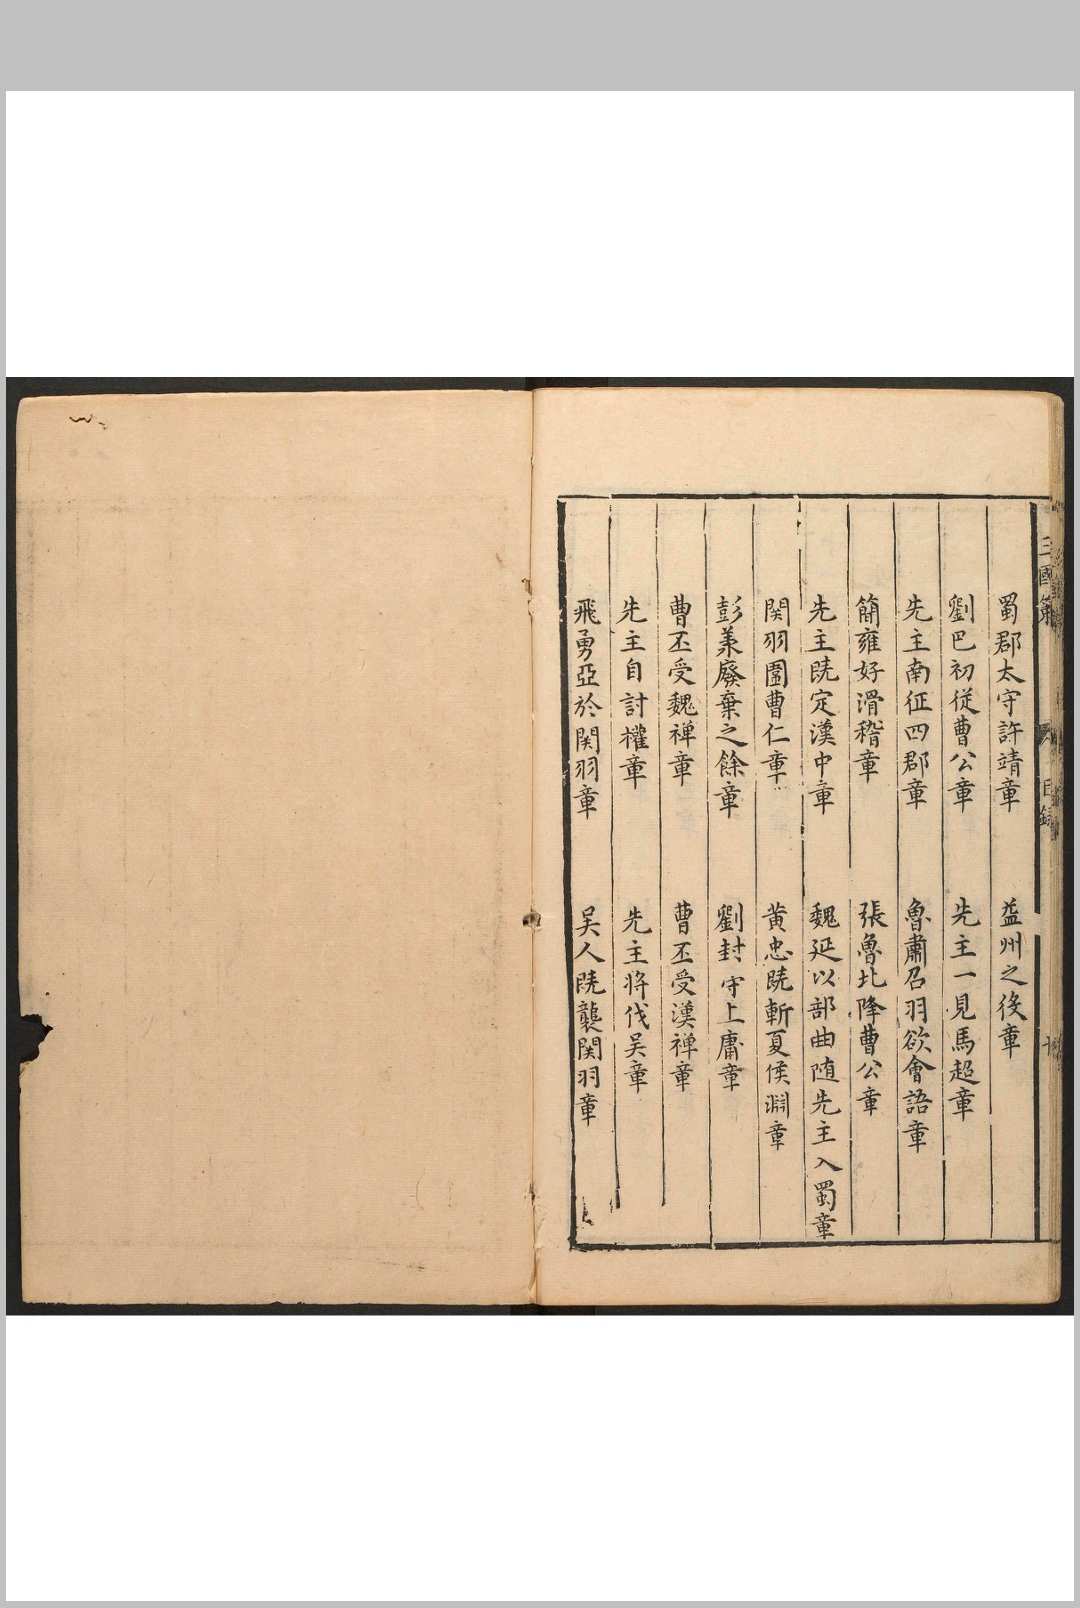 三國策
目錄
蜀郡太守許靖章　益州之後章
劉巴初従曹公章　先主一見馬超章
先主南征四郡章　魯肅召羽欲會語章
簡雍好滑稽章　張魯北降曹公章
先主既定漢中章　魏延以部曲随先主入蜀章
関羽圍曹仁章　黄忠既斬夏侯淵章
彭羕廢棄之餘章　劉封守上庸章
曹丕受魏禅章　曹丕受漢禅章
先主自討權章　先主将伐吴章
飛勇亞於関羽章　吴人既襲関羽章